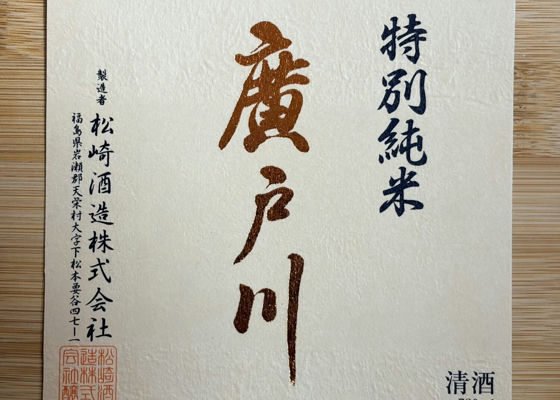 特別純米
廣戸川
製造者 松崎酒造株式会社
福島県岩瀬郡天栄村大字下松本要谷四七ー一
清酒